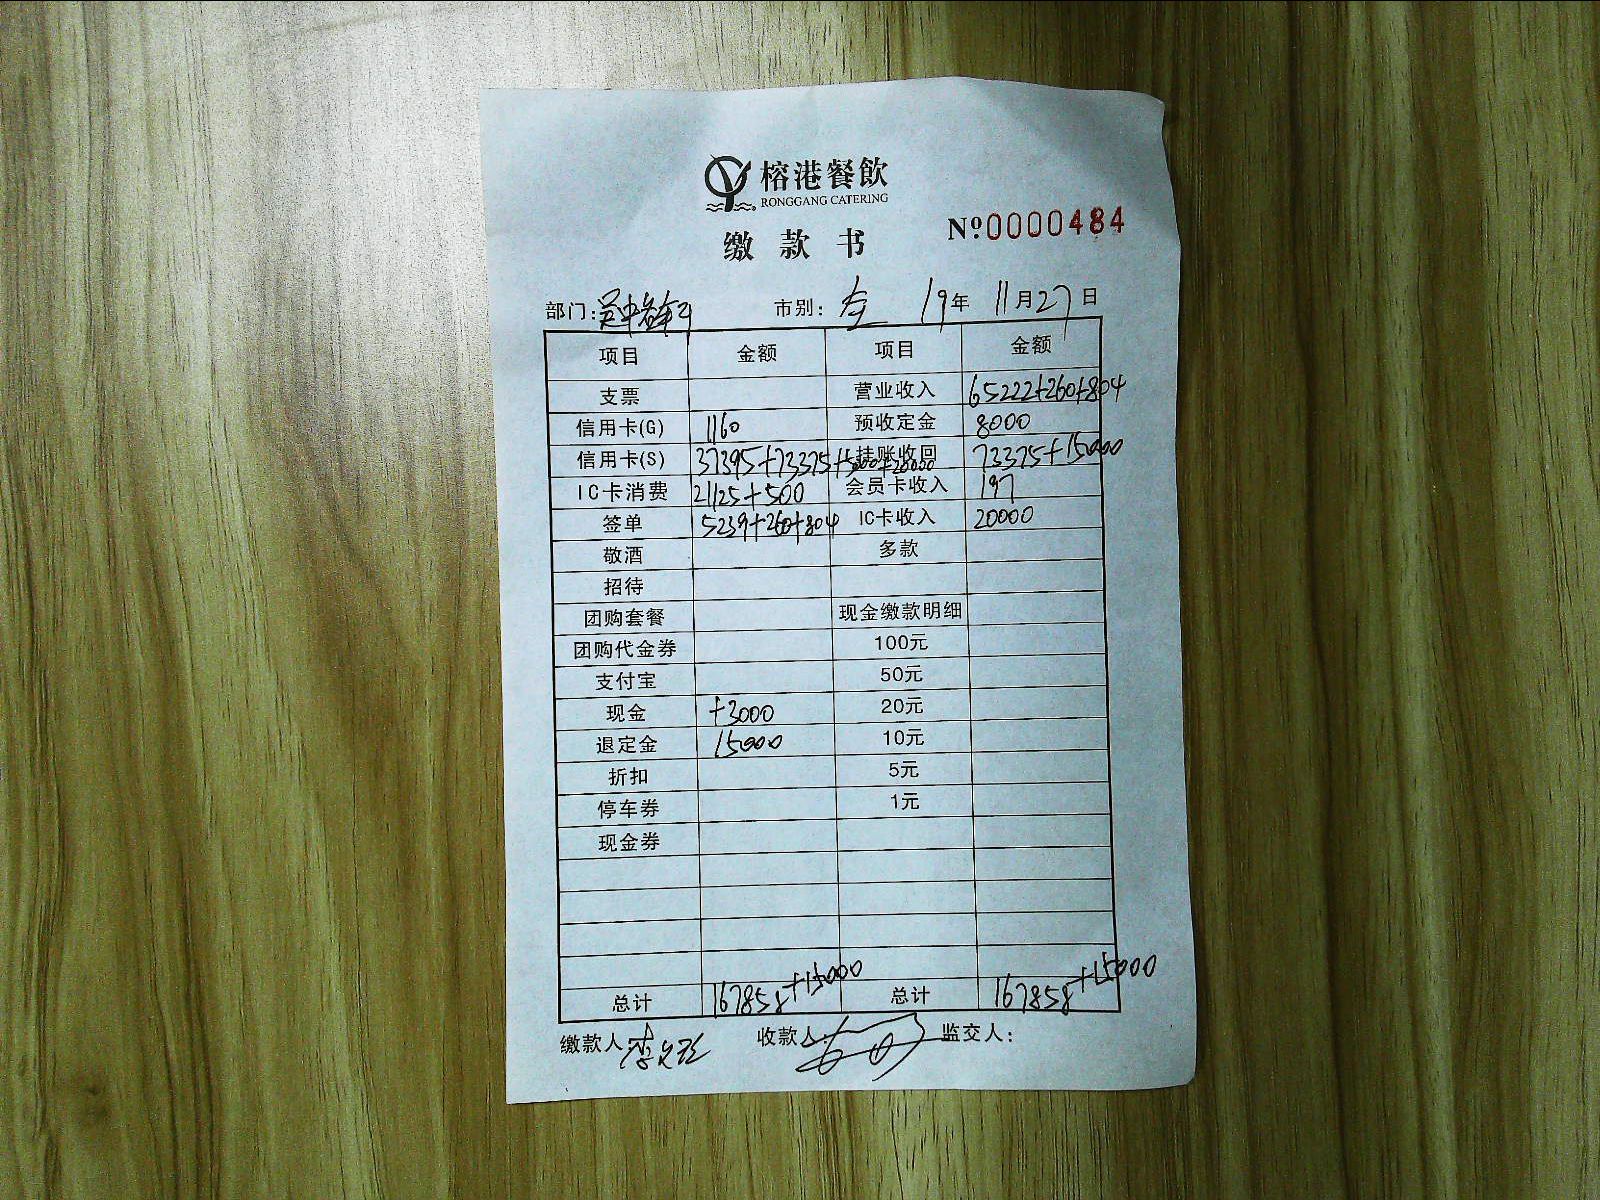 榕港餐飲
RONGGANG CATERING
缴款书
Nº0000484
部门: 市别: 19年 11月27日
项目 金额 项目 金额
支票 营业收入 65222+260+804
信用卡(G) 1160 预收定金 8000
信用卡(S) 37395+73375+5000+20000 挂账收回 73375+15000
IC卡消费 21125+500 会员卡收入 197
签单 5239+260+804 IC卡收入 20000
敬酒 多款
招待
团购套餐 现金缴款明细
团购代金券 100元
支付宝 50元
现金 +3000 20元
退定金 15000 10元
折扣 5元
停车券 1元
现金券
总计 167858+15000 总计 167858+15000
缴款人 收款人: 监交人: